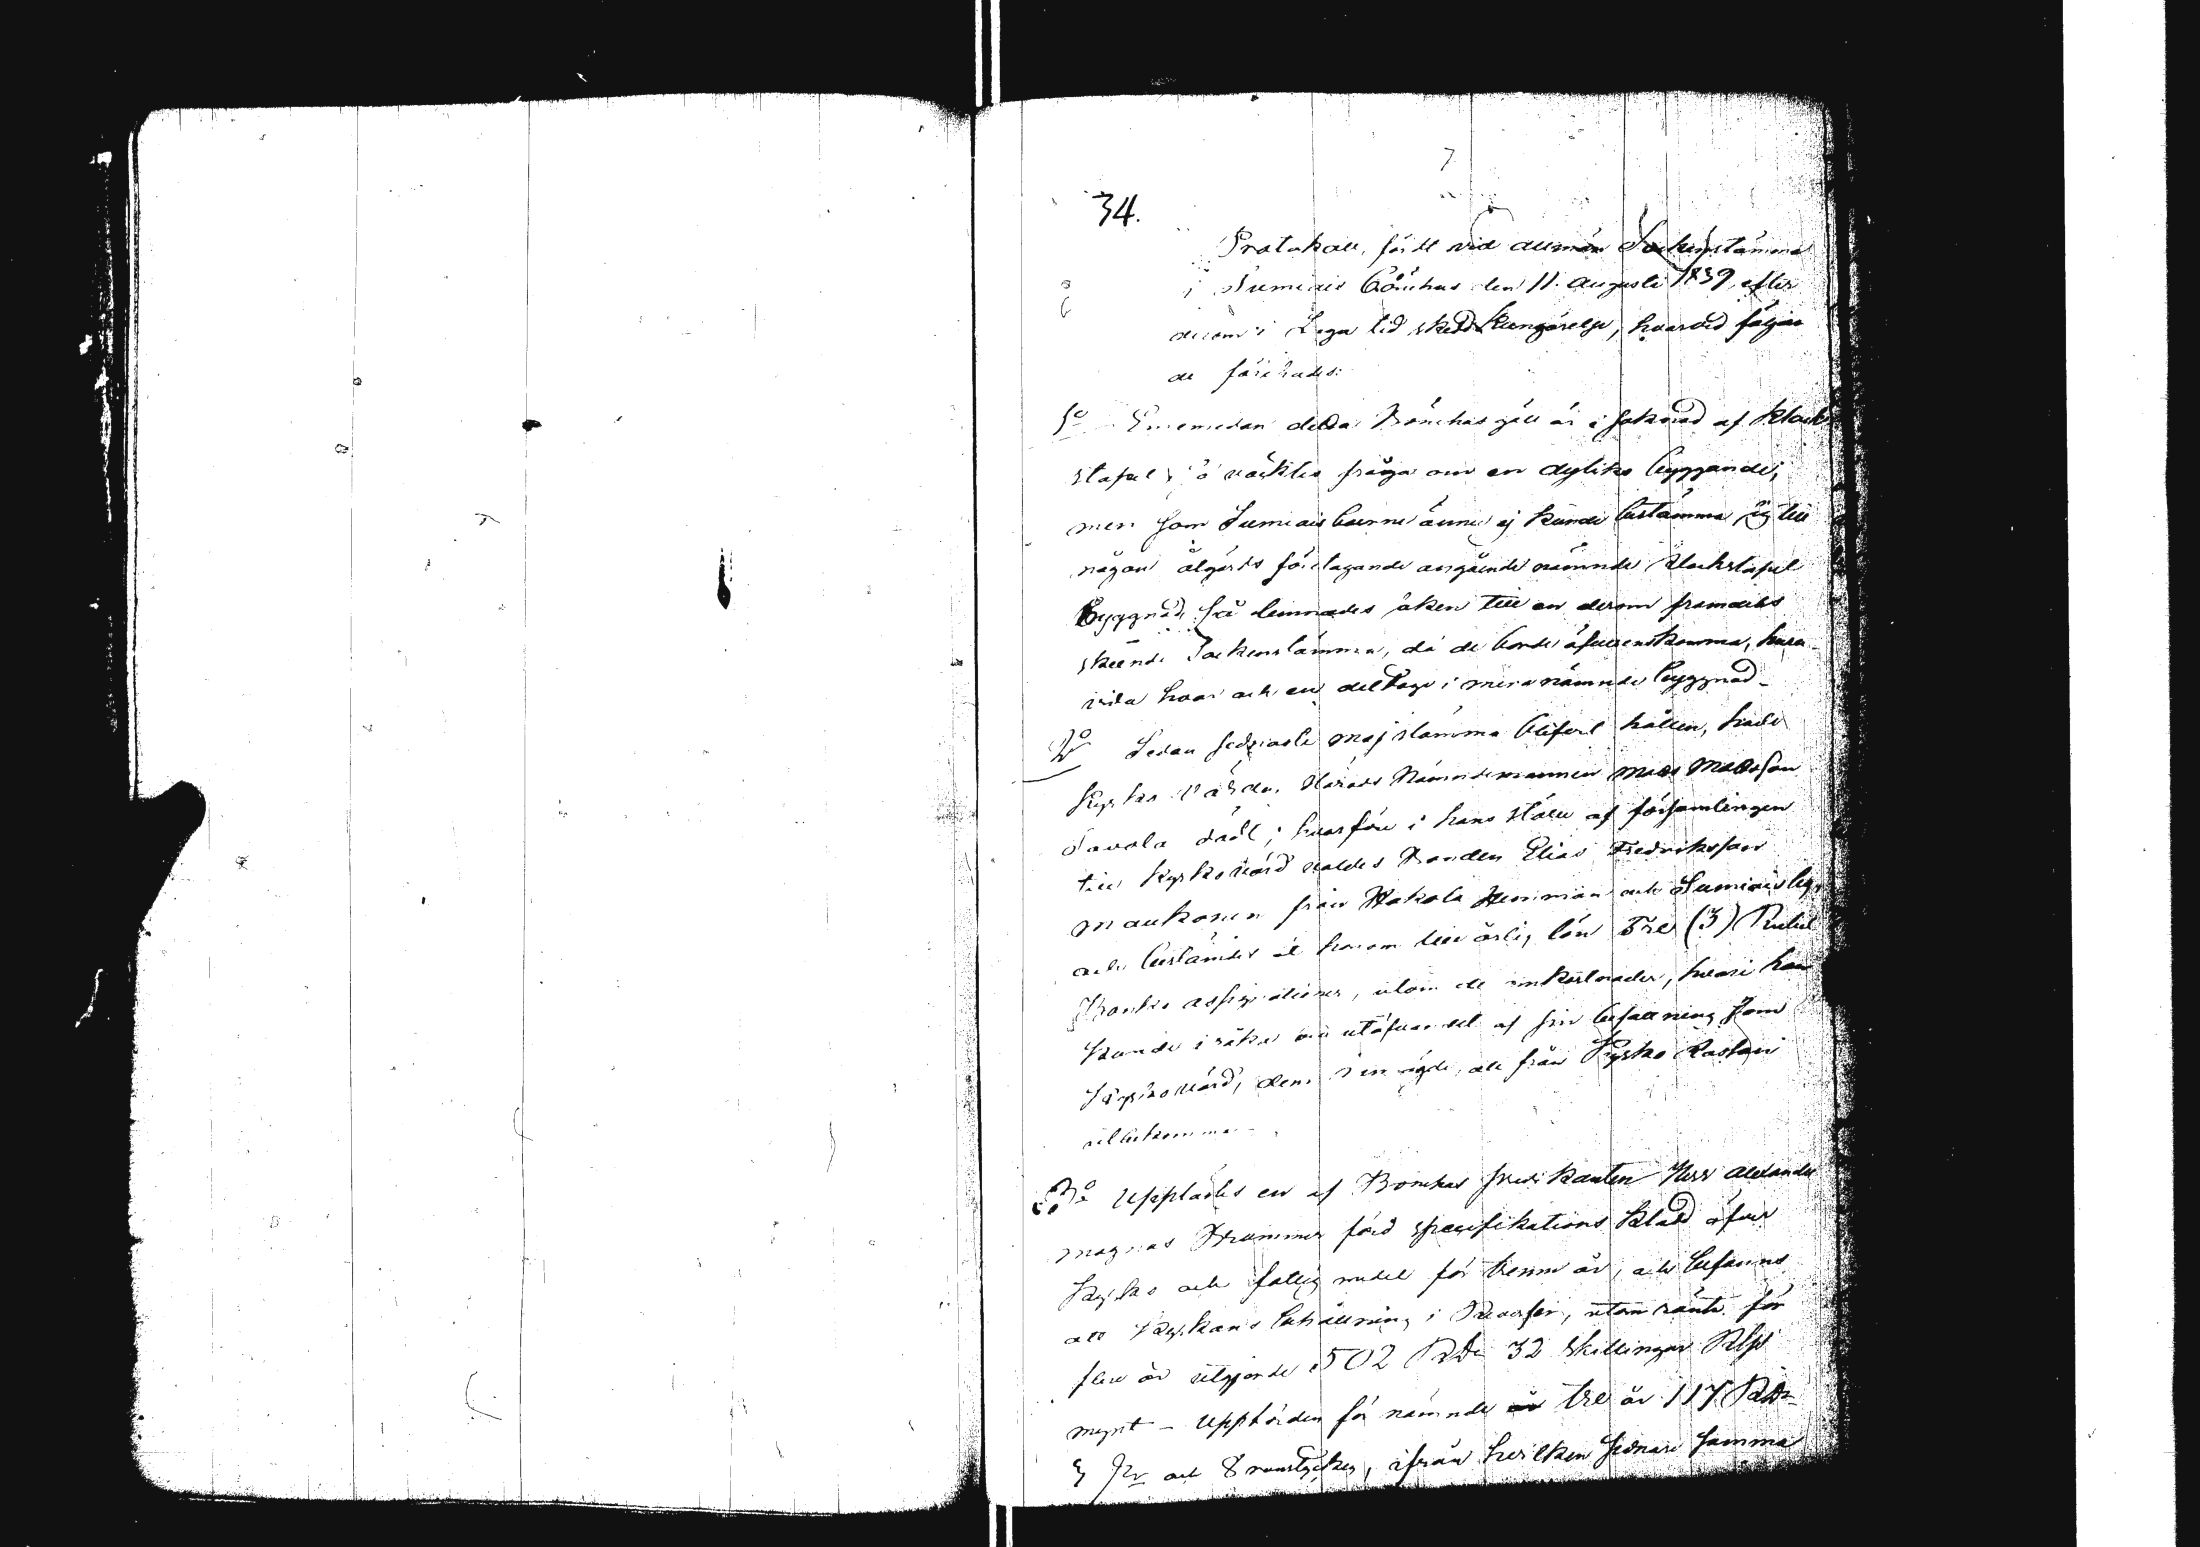 7
34.
Protokoll, fördt vid allmän Sockenstämma
i Sumiais Bönehus den 11. Augusti 1839, efter
derom i Laga tid skedd Kungörelse, hvarvid följan
de förehades:
1o Emedan detta Bönehusgäll är i saknad af Klock
stapel, så väcktes fråga om en dyliks byggande;
men som Sumiaisboerne ännu ej kunde bestämma sig till
någon åtgärds företagande angående nämnde Klockstapel
Byggnad, så lemnades saken till en derom framdeles
skeende Sockenstämma, då de borde öfverenskomma, huru
vida hvar och en deltager i mera nämnde byggnad.
2o Sedan sednaste Majstämma blifvit hållen, hade
Kyrko Värden Härads Nämndemannen Mats Matsson
Savola dödt; hvarföre i hans ställe af församlingen
till Kyrkovärd valdes Bonden Elias Fredriksson
Maukonen från Hakola Hemman och Sumiais by,
och bestämdes åt honom till årlig lön Tre (3) Rubel
Banko Assignationer, utom de omkostnader, hvari han
kunde iråka vid utöfvandet af sin befattning som
Kyrkovärd, dem han ägde, att från Kyrko Kassan
utbekomma.
3o Upplästes en af Bönehus predikanten Herr Alexander
Magnus Krammer förd specifikations Kladd öfver
Kyrko och fattig medel för trenne år, och befanns
att Kyrkans behållning i Reverser, utom ränta för
flere år utgjorde 502 RDr 32 Skillingar RGs
mynt – Uppbörden för nämnde tre år 117 RDr
5 Sk och 8 runstycken, ifrån hvilken sednare summa